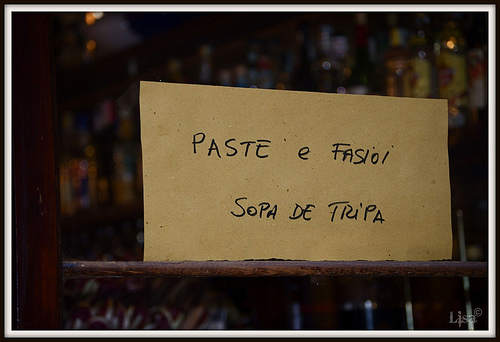 PASTE e FASIOI
SOPA DE TRIPA
Lisa©